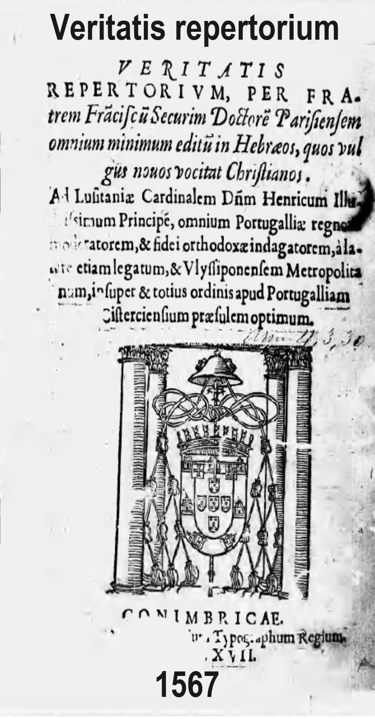 Veritatis repertorium
VERITATIS
REPERTORIVM, PER FRA-
trem Frãciscũ Securim Doctorẽ Parisiensem
omnium minimum editũ in Hebræos, quos vul
gus nouos vocitat Christianos.
Ad Lusitaniæ Cardinalem Dñm Henricum Illu-
issimum Principẽ, omnium Portugalliæ regno
moderatorem, & fidei orthodoxæ indagatorem, à la-
tere etiam legatum, & Vlyssiponensem Metropolita
num, insuper & totius ordinis apud Portugalliam
Cisterciensium præsulem optimum.
CONIMBRICAE.
Typographum Regium.
XVII.
1567